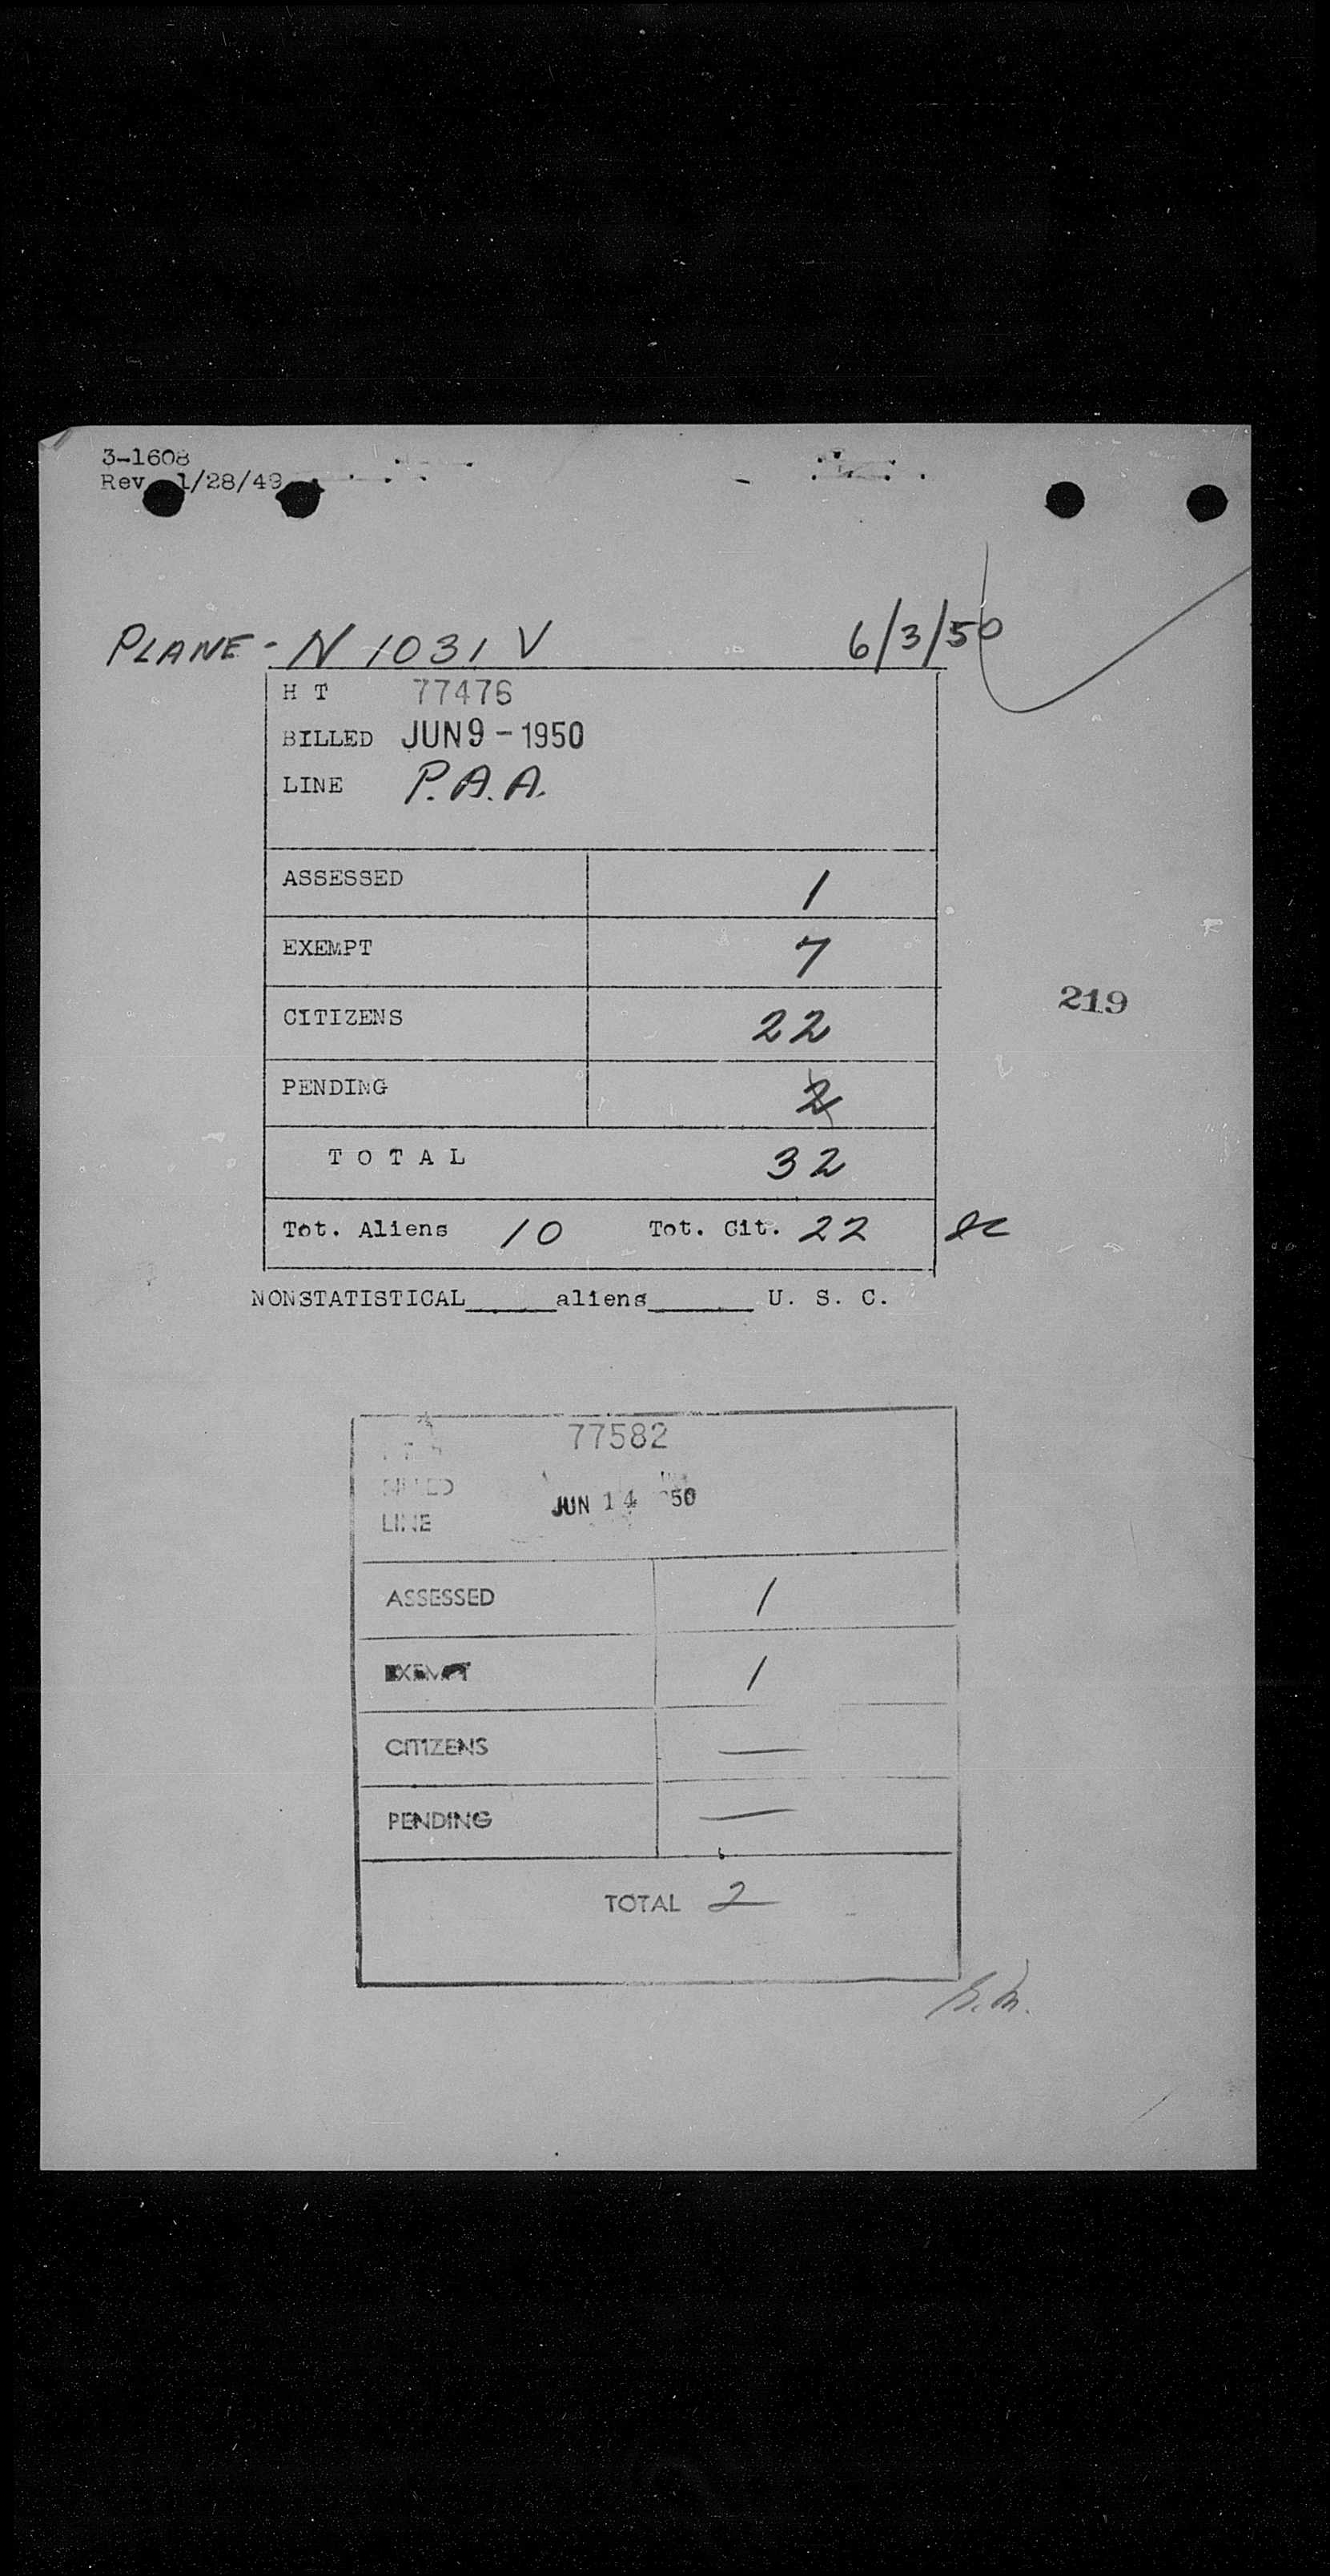 3-1608
Rev 1/28/49
PLANE - N 1031 V 6/3/50
H T 77476
BILLED JUN 9 - 1950
LINE P.A.A.
ASSESSED 1
EXEMPT 7
219
CITIZENS 22
PENDING 2
TOTAL 32
Tot. Aliens 10 Tot. Cit. 22
NONSTATISTICAL_____aliens______ U. S. C.
77582
BILLED JUN 14 50
LINE
ASSESSED 1
EXEMPT 1
CITIZENS —
PENDING —
TOTAL 2